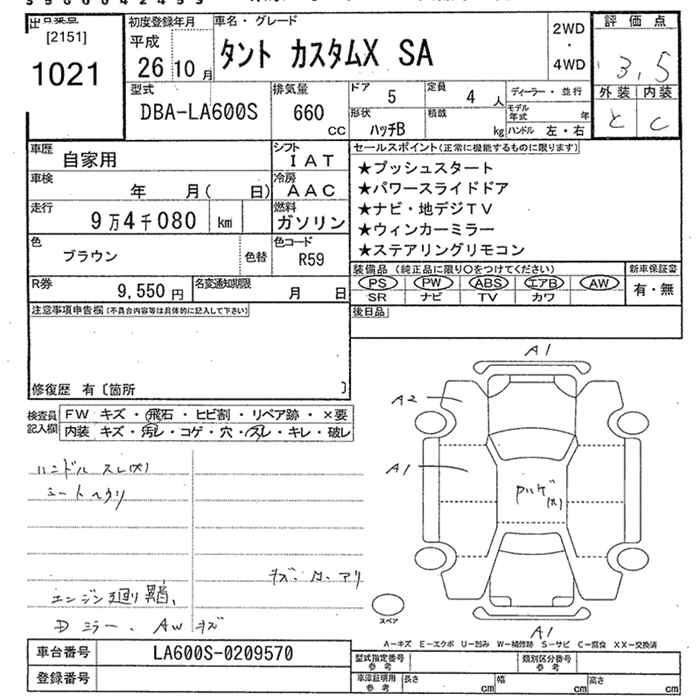 [2151]
1021
初度登録年月
平成
26 10 月
車名・グレード
タント カスタムX SA
2WD
・
4WD
評価点
3.5
外装 内装
C
型式
DBA-LA600S
排気量
660
CC
ドア 5
定員 4 人
ディーラー・並行
形状 ハッチB
積載 kg
モデル年式 年
ハンドル 左・右
車歴 自家用
シフト IAT
車検 年 月( 日)
冷房 AAC
走行 9万4千080 km
燃料 ガソリン
色 ブラウン 色替
色コード R59
R券 9,550 円
名変通知期限 月 日
セールスポイント(正常に機能するものに限ります)
★プッシュスタート
★パワースライドドア
★ナビ・地デジTV
★ウィンカーミラー
★ステアリングリモコン
装備品 (純正品に限り○をつけてください)
新車保証書
PS PW ABS エアB AW
有・無
SR ナビ TV カワ
後日品
注意事項申告欄(不具合内容等は具体的に記入して下さい)
修復歴 有〔箇所 〕
検査員記入欄
FW キズ・飛石・ヒビ割・リペア跡・×要
内装 キズ・汚レ・コゲ・穴・スレ・キレ・破レ
ハンドル スレ(大)
シート ヘタリ
エンジン廻り異音、
Dミラー、AWキズ
A1
A2
A1
A1
スペア
A-キズ E-エクボ U-凹み W-補修跡 S-サビ C-腐食 XX-交換済
車台番号 LA600S-0209570
登録番号
型式指定番号 参考
類別区分番号 参考
車庫証明用 参考 長さ cm 幅 cm 高さ cm